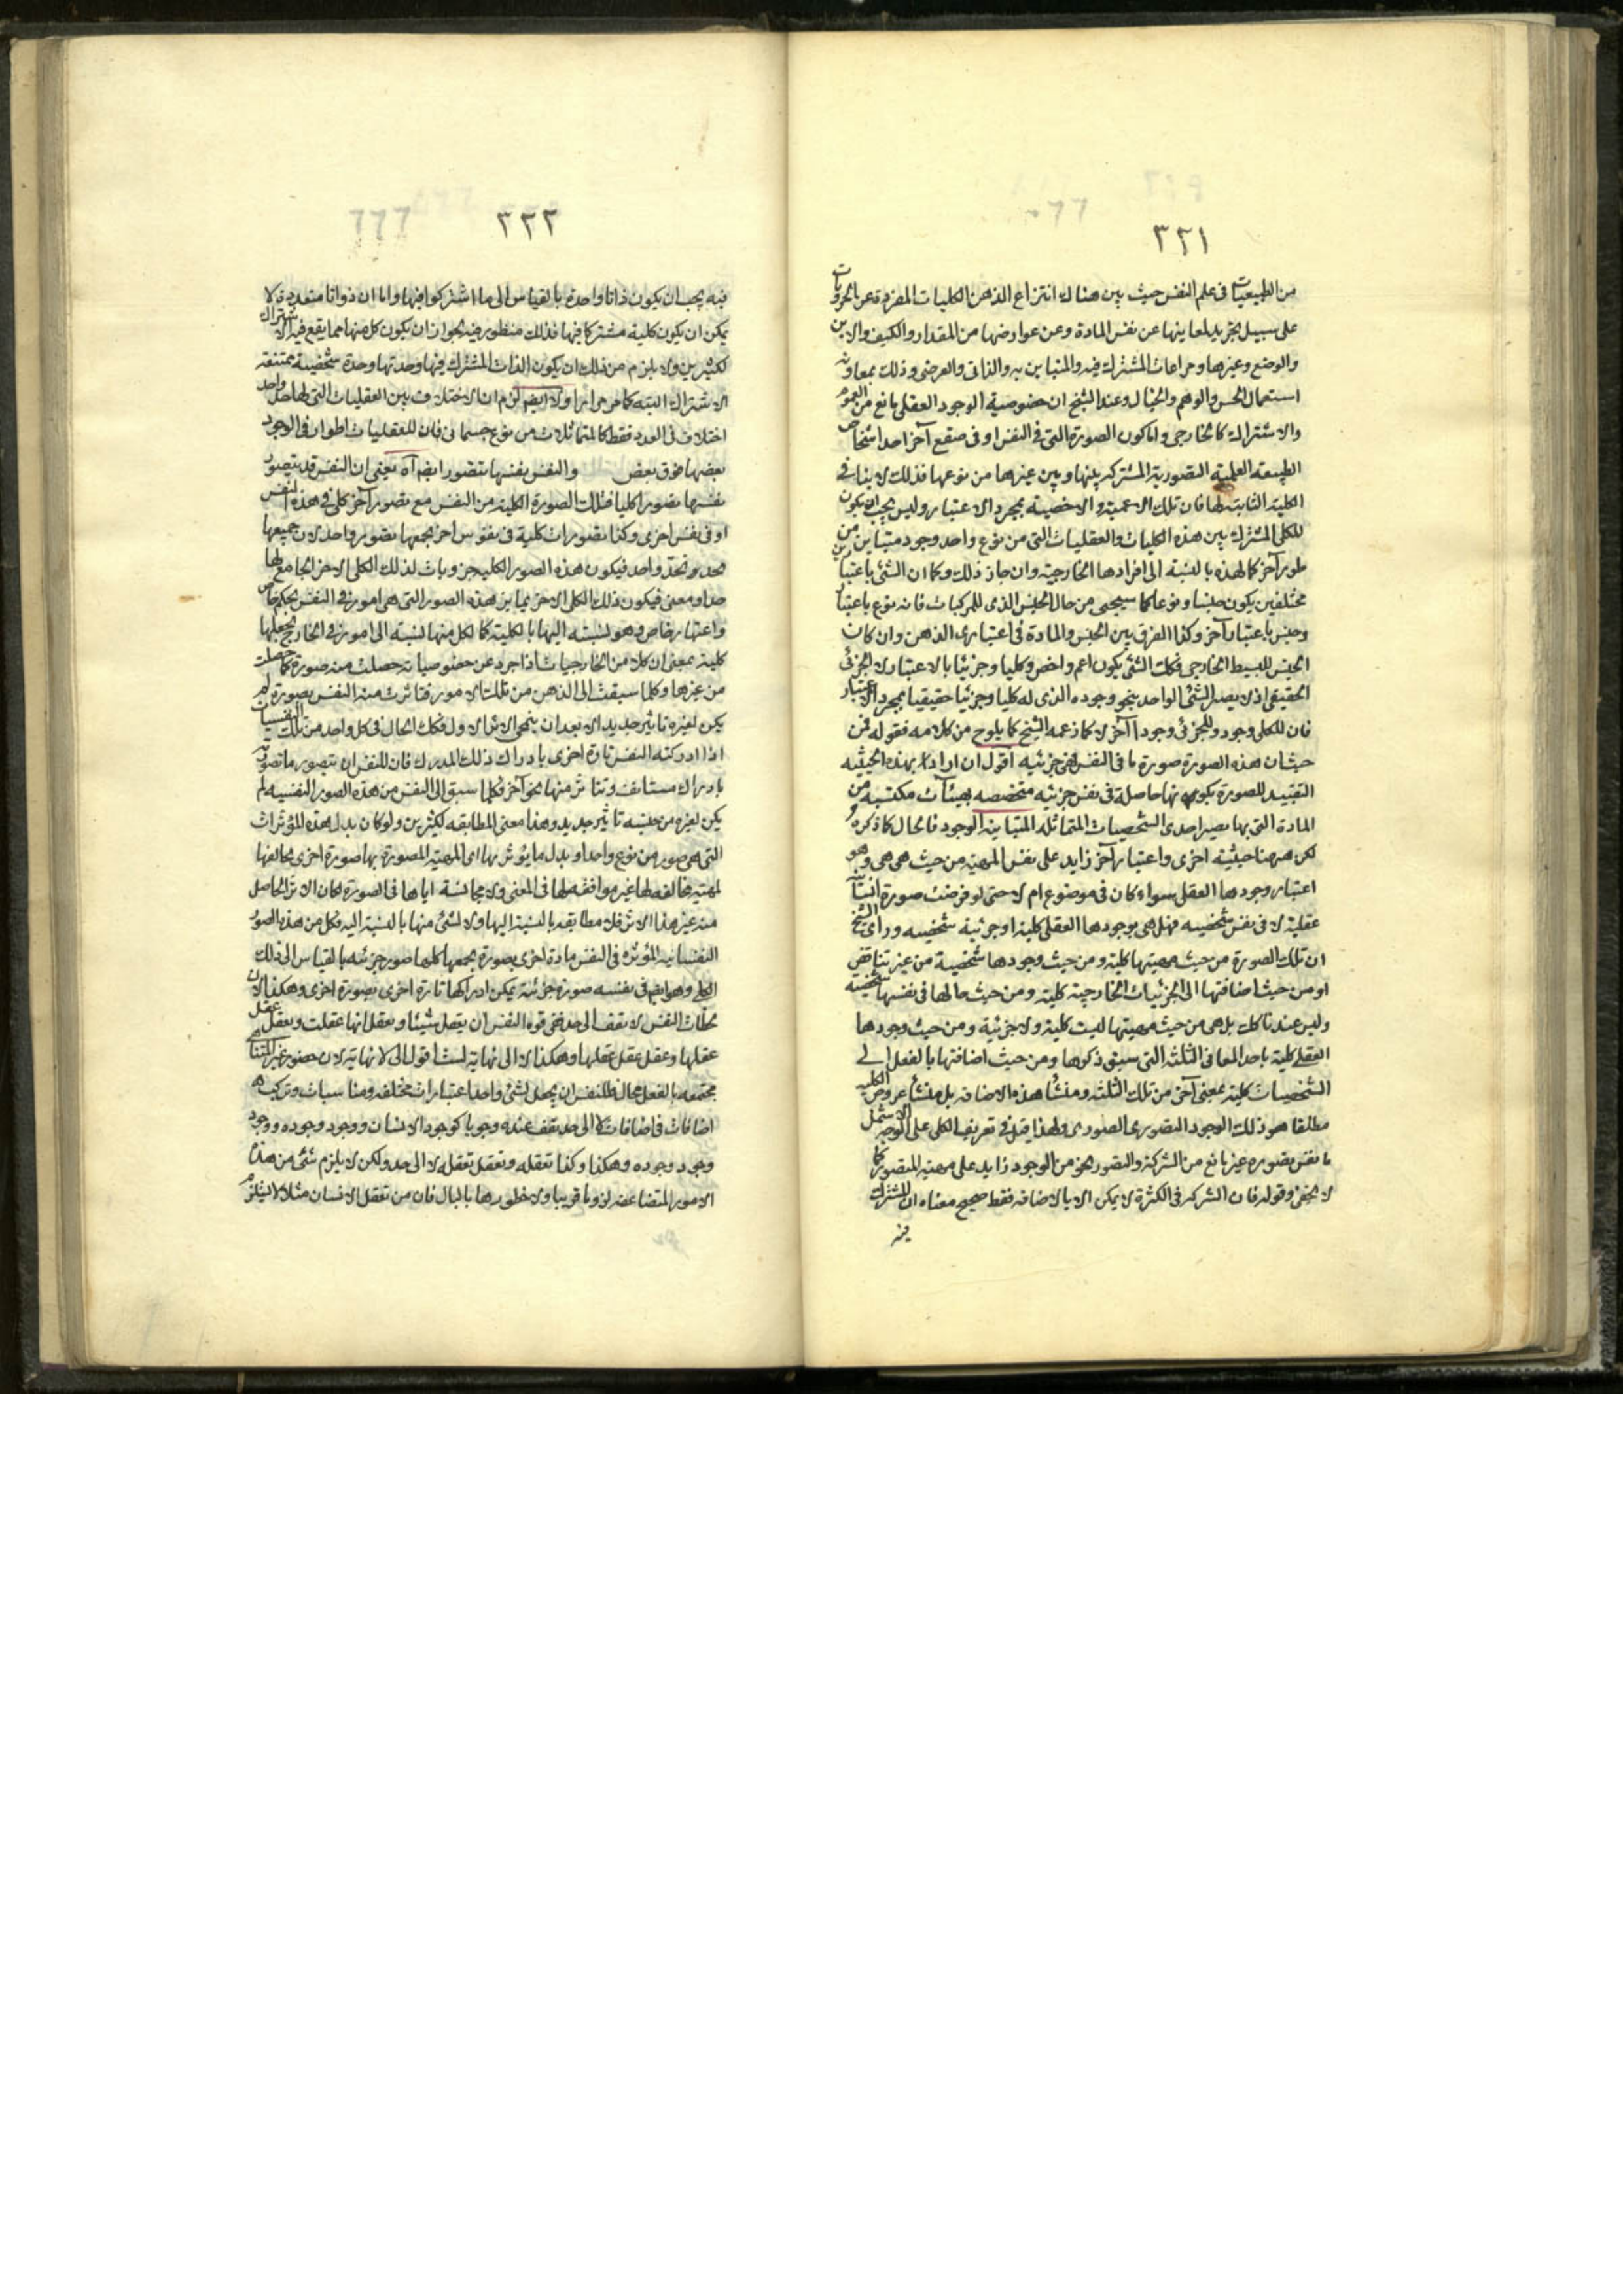 ٣٢١
من الطبيعيات فى علم النفس حيث بين هناك انتزاع الذهن الكليات المفردة عن الجزويات
على سبيل تجريد لمعانيها عن نفس المادة وعن عوارضها من المقدار والكيف والاين
والوضع وغيرها ومراعات المشترك فيه والمتباين به والذاتى والعرضى وذلك بمعاونة
استعمال الحس والوهم والخيال وعند الشيخ ان خصوصية الوجود العقلى مانع من العموم
والاشتراك كالخارجى واما كون الصورة التى فى النفس او فى صقع آخر احد اشخاص
الطبيعة العلمية التصورية المشتركة بينها وبين غيرها من نوعها فذلك لا ينافى
الكلية الثابتة لها فان تلك الاعمية والاخصية بمجرد الاعتبار وليس يجب ان يكون
للكلى المشترك بين هذه الكليات والعقليات التى من نوع واحد وجود متباين من
طور آخر كما لهذه بالنسبة الى افرادها الخارجية وان جاز ذلك وكما ان الشئ باعتبارين
مختلفين يكون جنسا ونوعا كما سيجى من حال الجنس الذى للمركبات فانه نوع باعتبار
وجنس باعتبار آخر وكذا الفرق بين الجنس والمادة فى اعتبارى الذهن وان كان
الجنس للبسيط الخارجى فكك الشئ يكون اعم واخص وكليا وجزئيا بالاعتبار لا الجزئى
الحقيقى اذ لا يصير الشئ الواحد بنحو وجوده الذى له كليا وجزئيا حقيقيا بمجرد الاعتبار
فان للكلى وجود وللجزئى وجودا آخر لا كما زعمه الشيخ كما يلوح من كلامه فقوله فمن
حيث ان هذه الصورة صورة ما فى النفس فهى جزئيه اقول ان اراد بهذه الحيثيه
التقييد للصورة بكونها حاصلة فى نفس جزئيه متخصصه بهيئآت مكتسبة من
المادة التى بها يصير احدى الشخصيات المتماثلة المتباينة الوجود فالحال كما ذكره
لكن ههنا حيثية اخرى واعتبار آخر زايد على نفس المهية من حيث هى هى وهو
اعتبار وجودها العقلى سواء كان فى موضوع ام لا حتى لو فرضت صورة انسان
عقلية لا فى نفس شخصيه فهل هى بوجودها العقلى كلية او جزئية شخصيه وراى الشيخ
ان تلك الصورة من حيث مهيتها كلية ومن حيث وجودها شخصية من غير تناقض
او من حيث اضافتها الى الجزئيات الخارجية كلية ومن حيث حالها فى نفسها شخصية
وليس عندنا كك بل هى من حيث مهيتها ليست كلية ولا جزئية ومن حيث وجودها
العقلى كلية باحد المعانى الثلثه التى سبق ذكرها ومن حيث اضافتها بالفعل الى
الشخصيات كلية بمعنى آخر من تلك الثلثه ومنشأ هذه الاضافة بل منشأ عروض الكلية
مطلقا هو ذلك الوجود التصورى الصورى ولهذا قيل فى تعريف الكلى على الوجه الاشمل
ما نفس تصوره غير مانع من الشركة والتصور نحو من الوجود زايد على مهية المتصور كما
لا يخفى وقوله فان الشركه فى الكثرة لا يمكن الا بالاضافه فقط صحيح معناه ان المشترك
فيه
٣٢٢
فيه يجب ان يكون ذاتا واحدة بالقياس الى ما اشتركوا فيها واما ان ذواتا متعددة لا
يمكن ان يكون كلية مشتركا فيها فذلك منظور فيه لجواز ان يكون كل منها مما يقع فيه الاشتراك
لكثيرين ولا يلزم من ذلك ان يكون الذات المشترك فيها وحدتها وحدة شخصية ممتنعة
الاشتراك البتة كما مر مرارا ولا ايضم لزم ان الاختلاف بين العقليات التى لها حد واحد
اختلاف فى العدد فقط كالمتماثلات من نوع جسمانى فان للعقليات اطوارا فى الوجود
بعضها فوق بعض والنفس نفسها تتصور ايضم آه يعنى ان النفس قد يتصور
نفسها تصورا كليا فتلك الصورة الكلية من النفس مع تصور آخر كلى فى هذه النفس
او فى نفس اخرى وكذا تصورات كلية فى نفوس اخر يجمعها تصور واحد لان جميعها
تحد واحد فيكون هذه الصور الكلية جزويات لذلك الكلى الاخر الجامع لها
حدا ومعنى فيكون ذلك الكلى الاخر يمايز هذه الصور التى هى امور فى النفس بحكم خاص
واعتبار خاص وهو نسبته اليها بالكلية كما لكل منها نسبة الى امور فى الخارج تجعلها
كلية بمعنى ان كلا من الخارجيات اذا جرد عن خصوصياته حصلت منه صورة كما حصلت
من غيرها وكلما سبقت الى الذهن من تلك الامور فتاثرت منه النفس بصورة لم
يكن لغيره تاثير جديد الا بعد ان ينمحى الاثر الاول فكك الحال فى كل واحد من تلك النفسيات
اذا ادركته النفس تارة اخرى بادراك ذلك المدرك فان للنفس ان تتصور ما تصورته
بادراك مستانف وتتاثر منها نحو آخر فكلما سبق الى النفس من هذه الصور النفسية لم
يكن لغيره من جنسه تاثير جديد وهذا معنى المطابقه لكثيرين ولو كان بدل هذه المؤثرات
التى هى صور من نوع واحد او بدل ما يؤثر بها اى المهية المصورة بها صورة اخرى مخالفها
لمهية مخالفه لها غير موافقه لها فى المعنى ولا مجانسة اياها فى الصورة لكان الاثر الحاصل
منه غير هذا الاثر فلا مطابقه بالنسبة اليها ولا لشئ منها بالنسبة اليه وكل من هذه الصور
النفسانيه المؤثره فى النفس مادة اخرى بصورة يجمعها كلها صور جزئيه بالقياس الى ذلك
الكلى وهو ايضم فى نفسه صورة جزئية يمكن ادراكها تارة اخرى بصورة اخرى وهكذا لان
النفس لا تقف الى حد ففى قوة النفس ان يعقل شيئا ويعقل انها عقلت ويعقل عقل
عقلها وعقل عقل عقلها وهكذا لا الى نهاية لست اقول الى لا نهاية لان حضور غير المتناهى
مجتمعه بالفعل محال فللنفس ان يجعل لشئ واحد اعتبارات مختلفه ومناسبات وتركيب
اضافات فى اضافات لا الى حد يقف عنده وجوبا كوجود الانسان ووجود وجوده ووجود
وجود وجوده وهكذا وكذا تعقله وتعقل تعقله لا الى حد ولكن لا يلزم شئ من هذه
الامور المتضاعفه لزوما قريبا ولا خطورها بالبال فان من تعقل الانسان مثلا لا يلزم